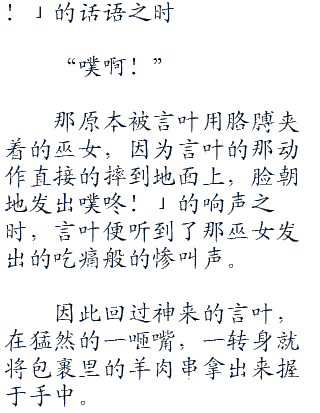 ！」的话语之时
“噗啊！”
那原本被言叶用胳膊夹
着的巫女，因为言叶的那动
作直接的摔到地面上，脸朝
地发出噗咚！」的响声之
时，言叶便听到了那巫女发
出的吃痛般的惨叫声。
因此回过神来的言叶，
在猛然的一咂嘴，一转身就
将包裹里的羊肉串拿出来握
于手中。